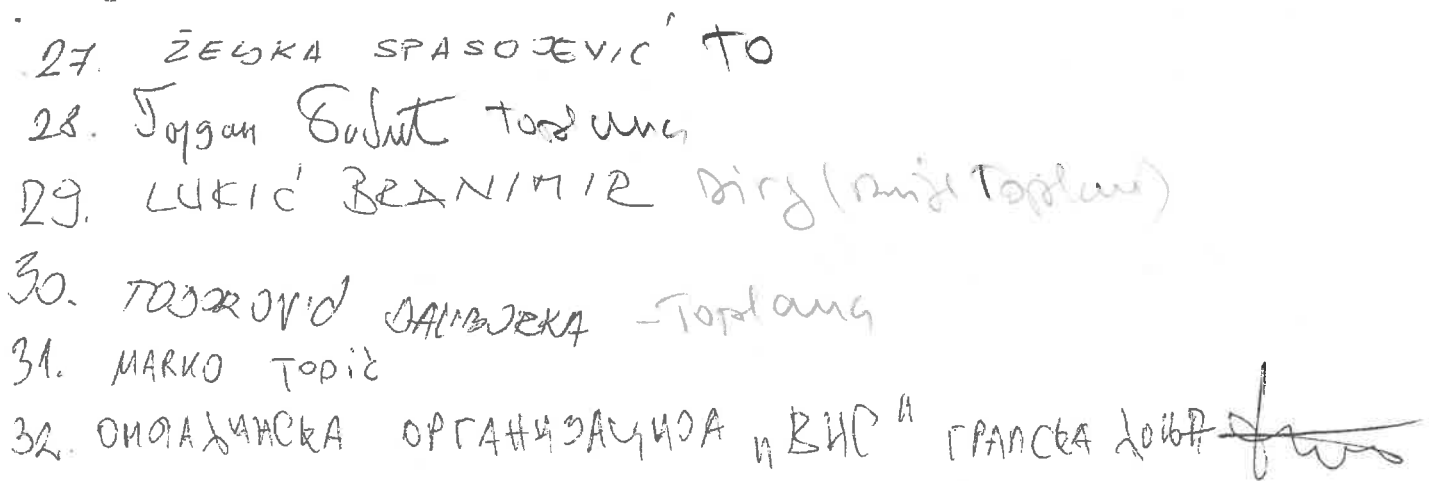 27. ŽELJKA SPASOJEVIĆ TO
28. Toplana
29. LUKIĆ BRANIMIR Toplana)
30. TODOROVIĆ DALIBORKA - Toplana
31. MARKO TODIĆ
32. ОМЛАДИНСКА ОРГАНИЗАЦИЈА „ВИС" ГРАПСКА ДОЊА